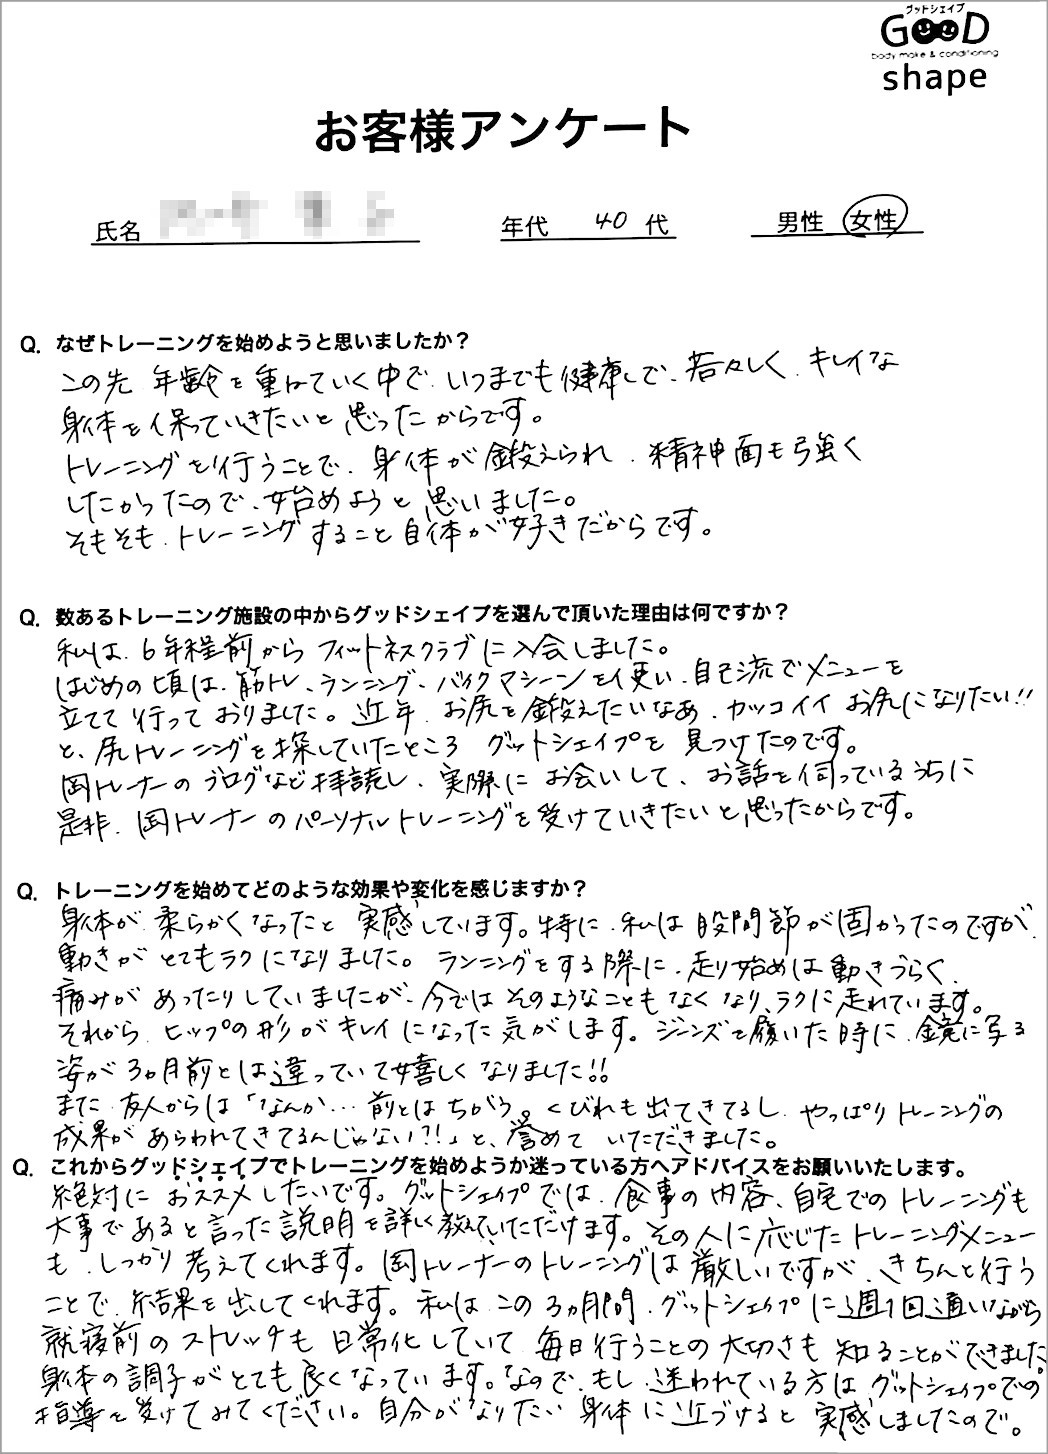 グットシェイプ
GOOD
body make & conditioning
shape
お客様アンケート
氏名
年代 40 代
男性 女性
Q. なぜトレーニングを始めようと思いましたか？
この先、年齢を重ねていく中で、いつまでも健康で、若々しく、キレイな
身体を保っていきたいと思ったからです。
トレーニングを行うことで、身体が鍛えられ、精神面も強く
したかったので、始めようと思いました。
そもそも、トレーニングすること自体が好きだからです。
Q. 数あるトレーニング施設の中からグッドシェイプを選んで頂いた理由は何ですか？
私は、6年程前からフィットネスクラブに入会しました。
はじめの頃は、筋トレ、ランニング、バイクマシーンを使い、自己流でメニューを
立てて行っておりました。近年、お尻を鍛えたいなあ、カッコイイお尻になりたい!!
と、尻トレーニングを探していたところ グットシェイプを見つけたのです。
岡トレーナーのブログなど拝読し、実際にお会いして、お話を伺っているうちに
是非、岡トレーナーのパーソナルトレーニングを受けていきたいと思ったからです。
Q. トレーニングを始めてどのような効果や変化を感じますか？
身体が柔らかくなったと実感しています。特に、私は股関節が固かったのですが、
動きがとてもラクになりました。ランニングをする際に、走り始めは動きづらく、
痛みがあったりしていましたが、今ではそのようなこともなくなり、ラクに走れています。
それから、ヒップの形がキレイになった気がします。ジーンズを履いた時に、鏡に写る
姿が3ヵ月前とは違っていて嬉しくなりました!!
また、友人からは「なんか…前とはちがう。くびれも出てきてるし、やっぱりトレーニングの
成果があらわれてきてるんじゃない?!」と、誉めていただきました。
Q. これからグッドシェイプでトレーニングを始めようか迷っている方へアドバイスをお願いいたします。
絶対におススメしたいです。グットシェイプでは、食事の内容、自宅でのトレーニングも
大事であると言った説明を詳しく教えていただけます。その人に応じたトレーニングメニュー
も、しっかり考えてくれます。岡トレーナーのトレーニングは厳しいですが、きちんと行う
ことで、結果を出してくれます。私は、この3ヵ月間、グットシェイプに週1回通いながら
就寝前のストレッチも日常化していて、毎日行うことの大切さも知ることができました。
身体の調子がとても良くなっています。なので、もし、迷われている方はグットシェイプでの
指導を受けてみてください。自分がなりたい身体に近づけると実感しましたので。